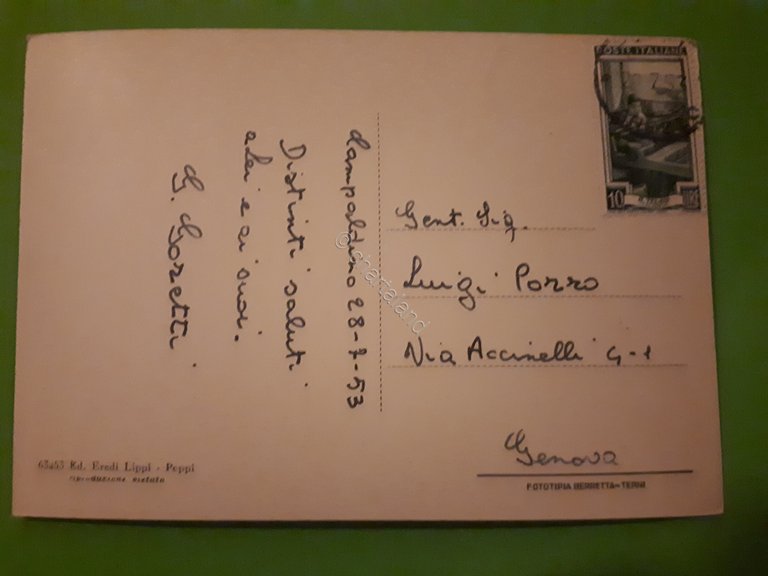 Campaldino 28-7-53
Distinti saluti
a Lei e ai suoi.
G. Goretti
POSTE ITALIANE
10
Gent. Sig.
Luigi Porro
Via Accinelli 4-1
Genova
63453 Ed. Eredi Lippi - Poppi
riproduzione vietata
FOTOTIPIA BERRETTA-TERNI
@chartaland